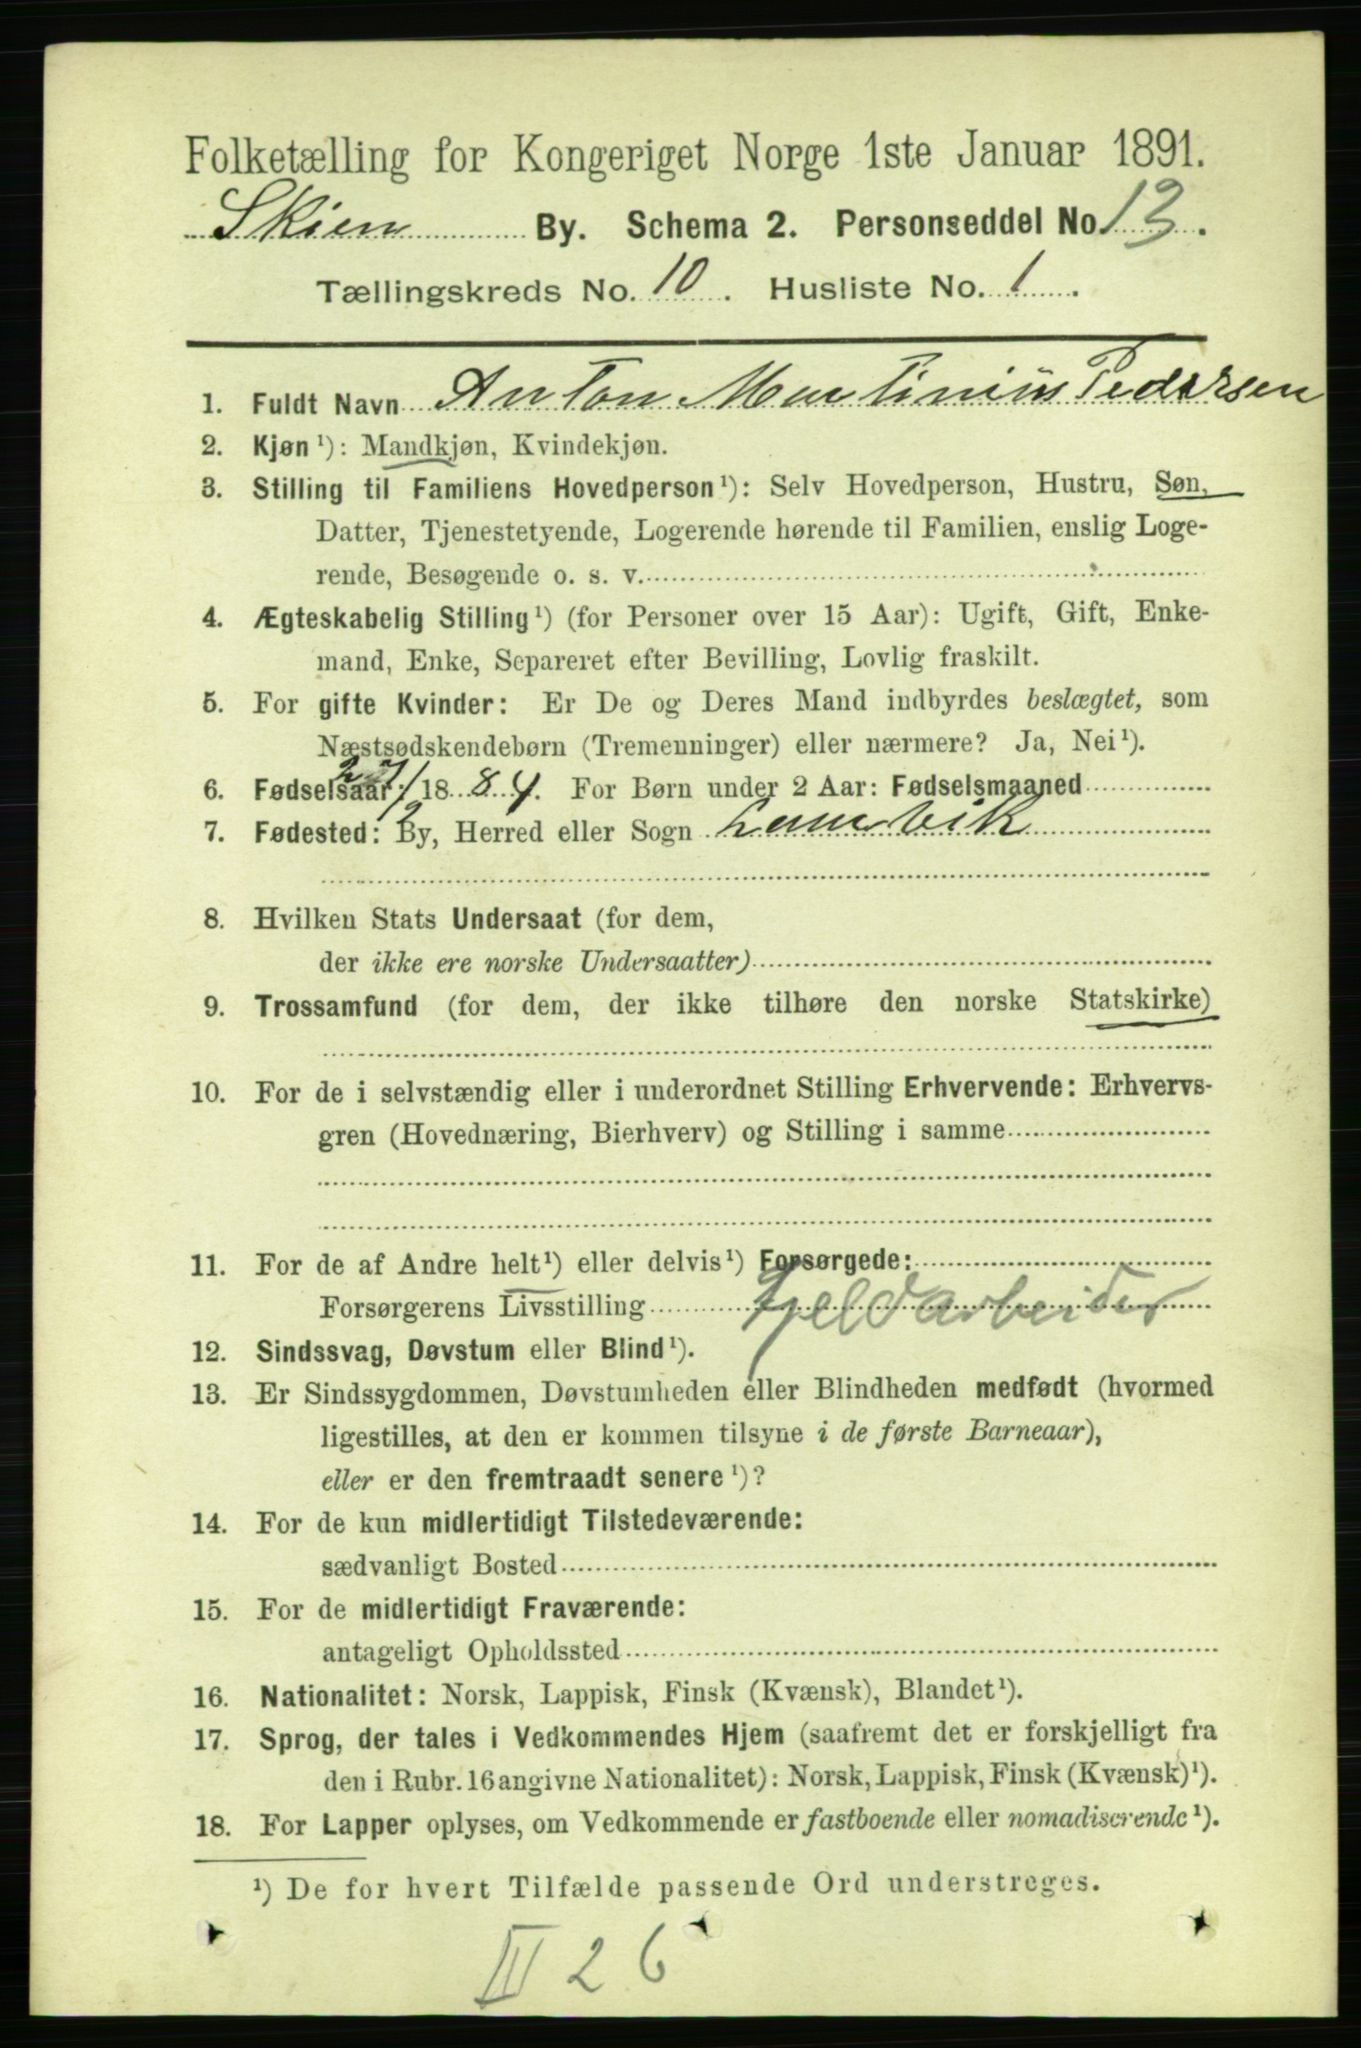 Folketælling for Kongeriget Norge 1ste Januar 1891.
Skien By. Schema 2. Personseddel No. 13.
Tællingskreds No. 10. Husliste No. 1.
1. Fuldt Navn Anton Martinius Pedersen
2. Kjøn¹): Mandkjøn, Kvindekjøn.
3. Stilling til Familiens Hovedperson¹): Selv Hovedperson, Hustru, Søn,
Datter, Tjenestetyende, Logerende hørende til Familien, enslig Loge-
rende, Besøgende o. s. v.
4. Ægteskabelig Stilling¹) (for Personer over 15 Aar): Ugift, Gift, Enke-
mand, Enke, Separeret efter Bevilling, Lovlig fraskilt.
5. For gifte Kvinder: Er De og Deres Mand indbyrdes beslægtet, som
Næstsødskendebørn (Tremenninger) eller nærmere? Ja, Nei¹).
6. Fødselsaar: 27/2 1884. For Børn under 2 Aar: Fødselsmaaned
7. Fødested: By, Herred eller Sogn
8. Hvilken Stats Undersaat (for dem,
der ikke ere norske Undersaatter)
9. Trossamfund (for dem, der ikke tilhøre den norske Statskirke)
10. For de i selvstændig eller i underordnet Stilling Erhvervende: Erhvervs-
gren (Hovednæring, Bierhverv) og Stilling i samme
11. For de af Andre helt¹) eller delvis¹) Forsørgede:
Forsørgerens Livsstilling Fjeldarbeider
12. Sindssvag, Døvstum eller Blind¹).
13. Er Sindssygdommen, Døvstumheden eller Blindheden medfødt (hvormed
ligestilles, at den er kommen tilsyne i de første Barneaar),
eller er den fremtraadt senere¹)?
14. For de kun midlertidigt Tilstedeværende:
sædvanligt Bosted
15. For de midlertidigt Fraværende:
antageligt Opholdssted
16. Nationalitet: Norsk, Lappisk, Finsk (Kvænsk), Blandet¹).
17. Sprog, der tales i Vedkommendes Hjem (saafremt det er forskjelligt fra
den i Rubr. 16 angivne Nationalitet): Norsk, Lappisk, Finsk (Kvænsk)¹).
18. For Lapper oplyses, om Vedkommende er fastboende eller nomadiserende¹).
¹) De for hvert Tilfælde passende Ord understreges.
III 26